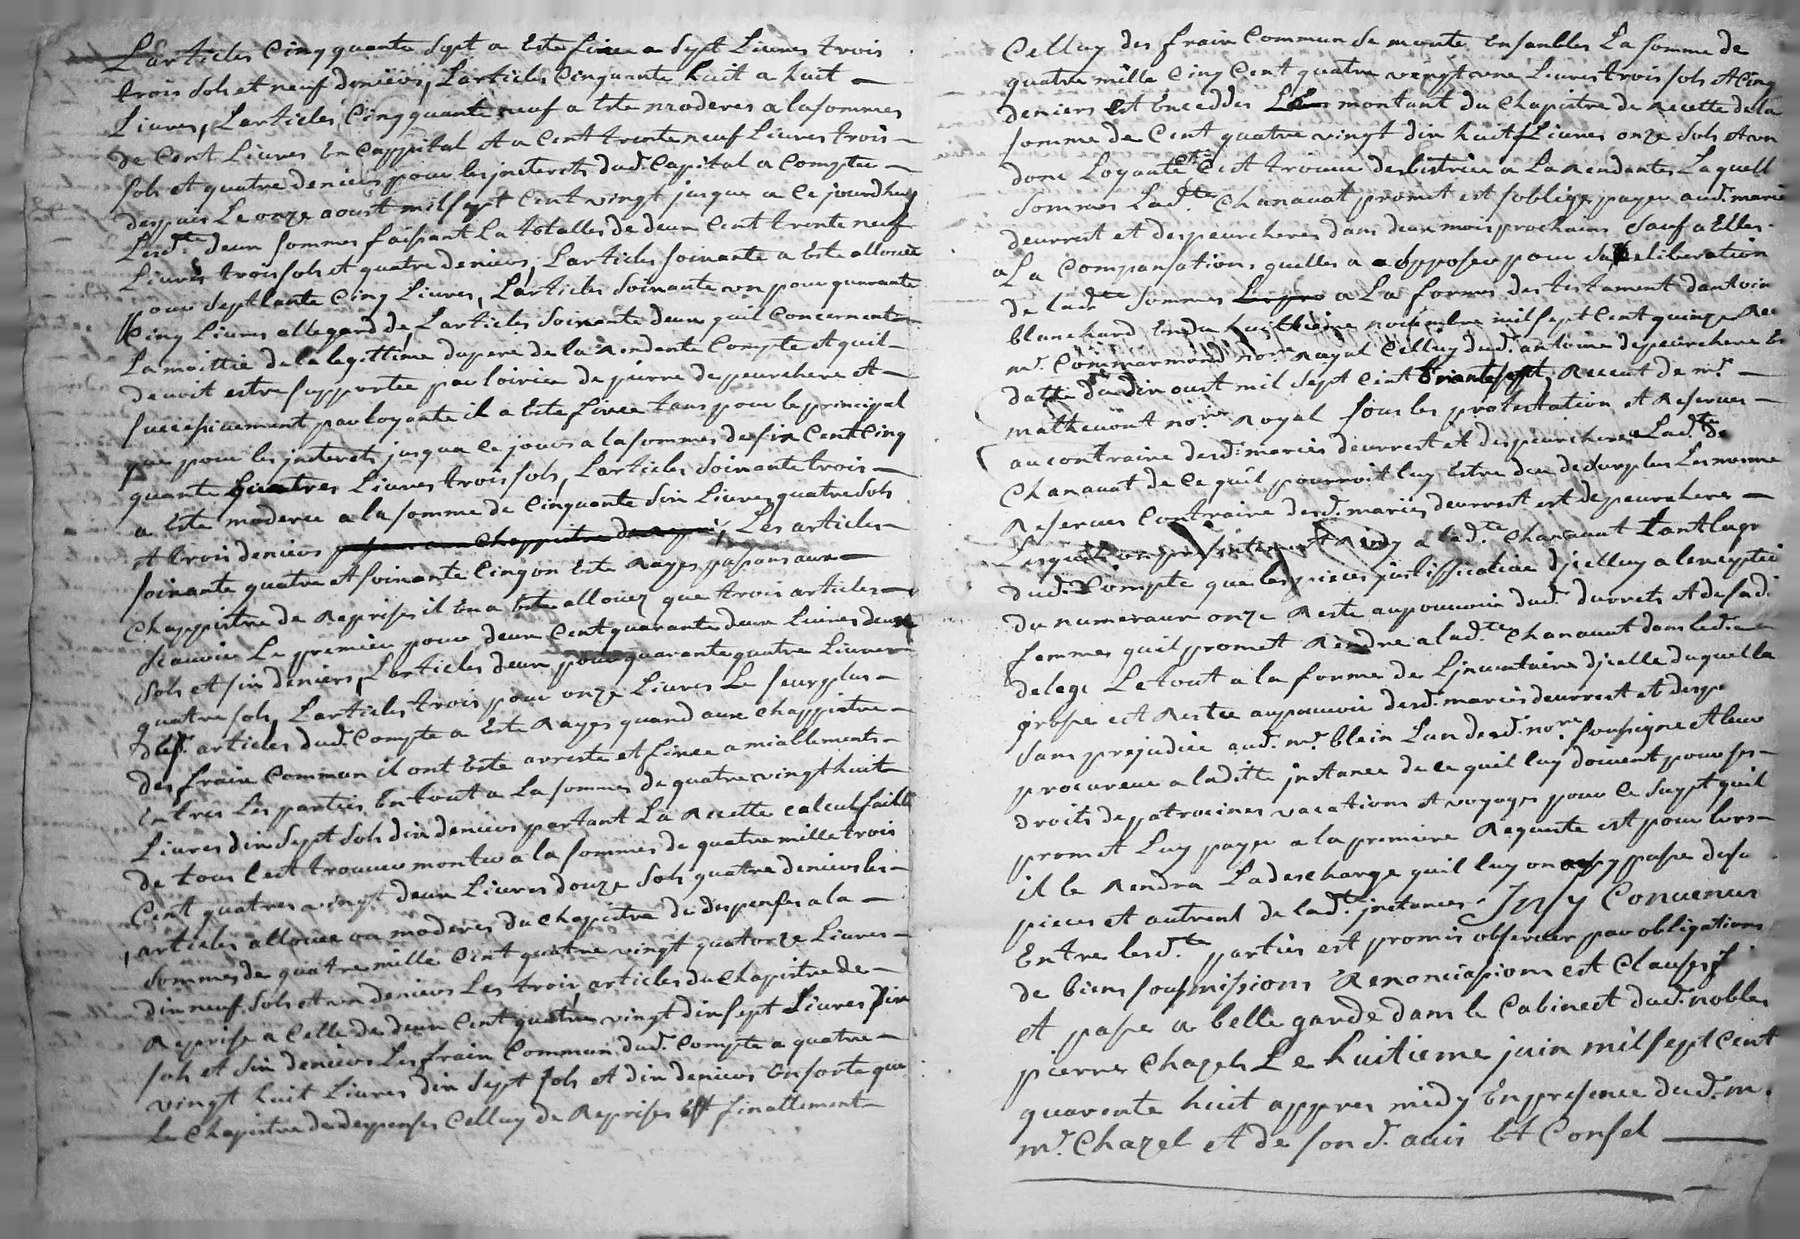 L'articles Cinqquante Sept a Este fixee a Sept Livres trois
trois Sols et neuf deniers, L'articles Cinquante huit a huit —
Livres, L'articles Cinqquante neuf a Este moderes a la sommes
de Cent Livres En Cappital et a Cent trente neuf Livres trois —
Sols et quatre deniers pour les jnterets dud. Cappital a Compter —
despuis Le onze aoust mil sept Cent vingt jusque a Ce jourdhuy
Lesd.tes deux sommes faisant La totalles de deux Cent trente neuf
Livres trois sols et quatre deniers, L'articles soixante a Este allouee
pour Septante Cinq Livres, L'articles Soixante un pour quarante
Cinq Livres allegard de L'articles Soixante deux quil Concernent
La moittie de la legittime du pere de la Rendante Compte et quil —
devoit estre supportée par loirien de pierre depeurchere et —
successivement par loyante il a Este fixee tans pour le principal
que pour les jnterets jusqua Ce jours a la sommes de six Cent Cinq
quante quatres Livres trois sols, L'articles Soixante trois —
a Este moderee a la somme de Cinquante Six Livres quatre Sols
et trois deniers passons aux Chappitre de Repri, Les articles —
soixante quatre et soixante Cinq on Este Rayes passons aux —
Chappittre de Reprises il En a Este allouez que trois articles —
scauvir Le premier pour deux Cent quarante deux Livres deux
Sols et six deniers, L'articles deux pour quarante quatre Livres
quatre sols, L'articles trois pour onze Livres Le surplus —
desd. articles dud. Compte a Este Rayes quand aux Chappittre —
des fraix Commun il ont Este arreste et fixee amiablements —
Entres Les parties En tout a La sommes de quatre vingt huit
Livres dix Sept Sols dix deniers partant La Recette calcul faitte
de tous C'est trouveu monteu a la sommes de quatre mille trois
Cent quatres vingt deux Livres douze Sols quatre deniers les —
articles allouee ou moderes du Chapittre de despenses a la —
Sommes de quatre mille Cent quatre vingt quatorze Livres —
dix neuf Sols et un deniers Les trois articles du Chapittre de —
Reprise a Celle de deux Cent quatre vingt dix sept Livres dix
sols et Six deniers Les fraix Commun dud. Compte a quatre —
vingt huit Livres dix Sept sols et dix deniers En sorte que
Le Chapittre de despenses Celluy de Reprises Est finallement
Celluy des fraix Commun Se monte Ensanbles La somme de
quatre mille Cinq Cent quatre vingt une Livres trois sols et Cinq
deniers et Enceddes Le montant du Chapittre de Recette de la
somme de Cent quatre vingt dix huit Livres onze Sols et un
donc Loyante C'est trouvee debitrice a La Rendantes Laquell
Sommes Lad.te Chanavat promet et soblige payer aud. marie
deurrest et despeurcheres dans deux mois prochains Sauf a Elles —
a La Compansations quelles a opposer pour Sa deliberation
de lad.te Sommes a La formes des testament dantoin
blanchard En du huittieme novembre mil sept Cent quinze Rec
m.r Commarmond no.re Royal Celluy dud. antoine depeurchere En
datte du dix oust mil Sept Cent trante sept, Receut de m.r —
mathevont no.re Royal sous les protestation et Reserves —
au contraire desd. maries deurrest et despeurchere Lad.te de
Chanavat de Ce quil pourroit luy Estre deu de Surplus Les mesme
Reserves Contraire desd. maries deurrest est depeurcheres —
Lesquels on presentement Rendy a lad.te Chanavat tant lage
dud. Compte que les pieces justifficative djcelluy a lexceptie
du numeraux onze Reste aupouvoir dud. durrets et de sad.
femmes quil promet Rendre a lad.te Chanavat dans led. —
delege Le tout a la formes de Ljnventaire djcelle du quella
grosse est Restee aupouvoir desd. maries deurrest et despe
Sans prejudice aud. m.r blein Lun desd. no.re soussigne et leur
procureur a laditte jnstance de ce quil luy doivent pour ses —
droits de patrocines vacations et voyages pour Ce Sugpt quil
promet Luy payer a la premiere Requeste est pour lors —
il le Rendra La descharge quil luy on passe desd.
pieces et autrent de lad.te jnstances. Jnsy Convenus
Entre lesd.te parties est promis observer par obligations
de biens sousmissions Renonciasions est Clauses
et passe a belle garde dans le Cabinect dud. nobles
pierres Chazels Le huitieme juin mil sept Cent
quarente huit appres midy En presence dud. m.
m.r Chazel et de son d. avis Et Consel —